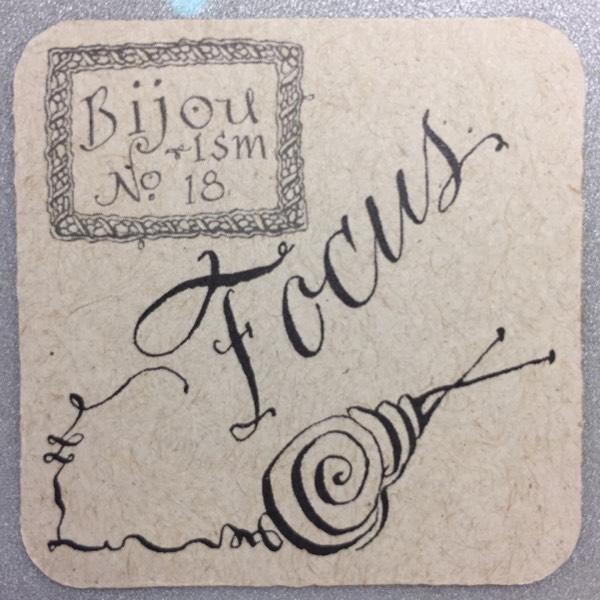 Bijou
-ism
No 18
Focus